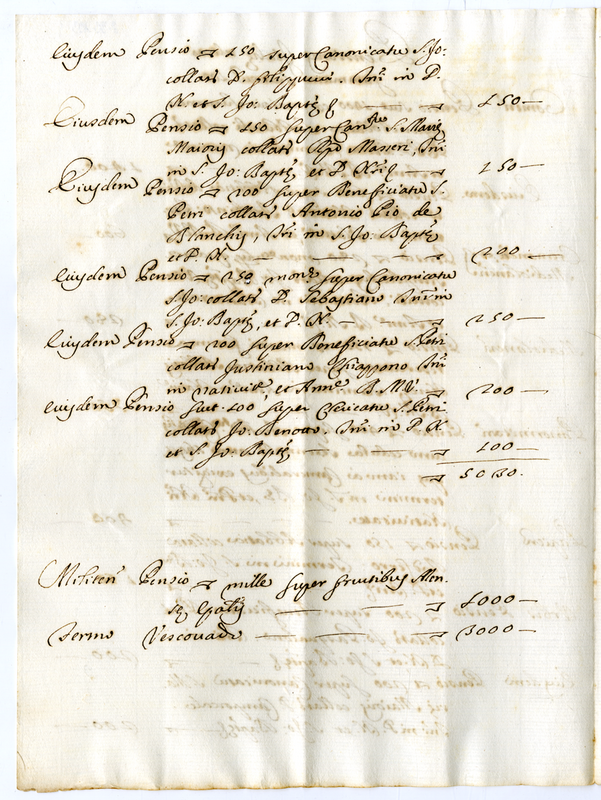 Eiusdem Pensio 150 super Canonicatu S. Jo:
collats D. Filippucci. Tri in D.
N. et S. Jo: Baptę 150
Eiusdem Pensio 150 super Can.tu S. Marię
Maioris collats Masseri, Tri
in S. Jo: Baptę et D. N. 150
Eiusdem Pensio 200 super Beneficiatu S.
Petri collats Antonio Pio de
Blanchis, Tri in S. Jo: Baptę
et D. N. 200
Eiusdem Pensio 250 monę super Canonicatu
S. Jo: collats D. Sebastiano Tri in
S. Jo: Baptę, et D. N. 250
Eiusdem Pensio 200 super Beneficiatu S. Petri
collats Justiniano Chiappono Tri
in nativit.e, et Ann.e B. M. V. 200
Eiusdem Pensio 100 super Clericatu S. Petri
collats Jo: Benotto. Tri in D. N.
et S. Jo: Baptę 100
5030.
Militen Pensio mille super fructibus Men
1000
Fermo Vescovado 3000